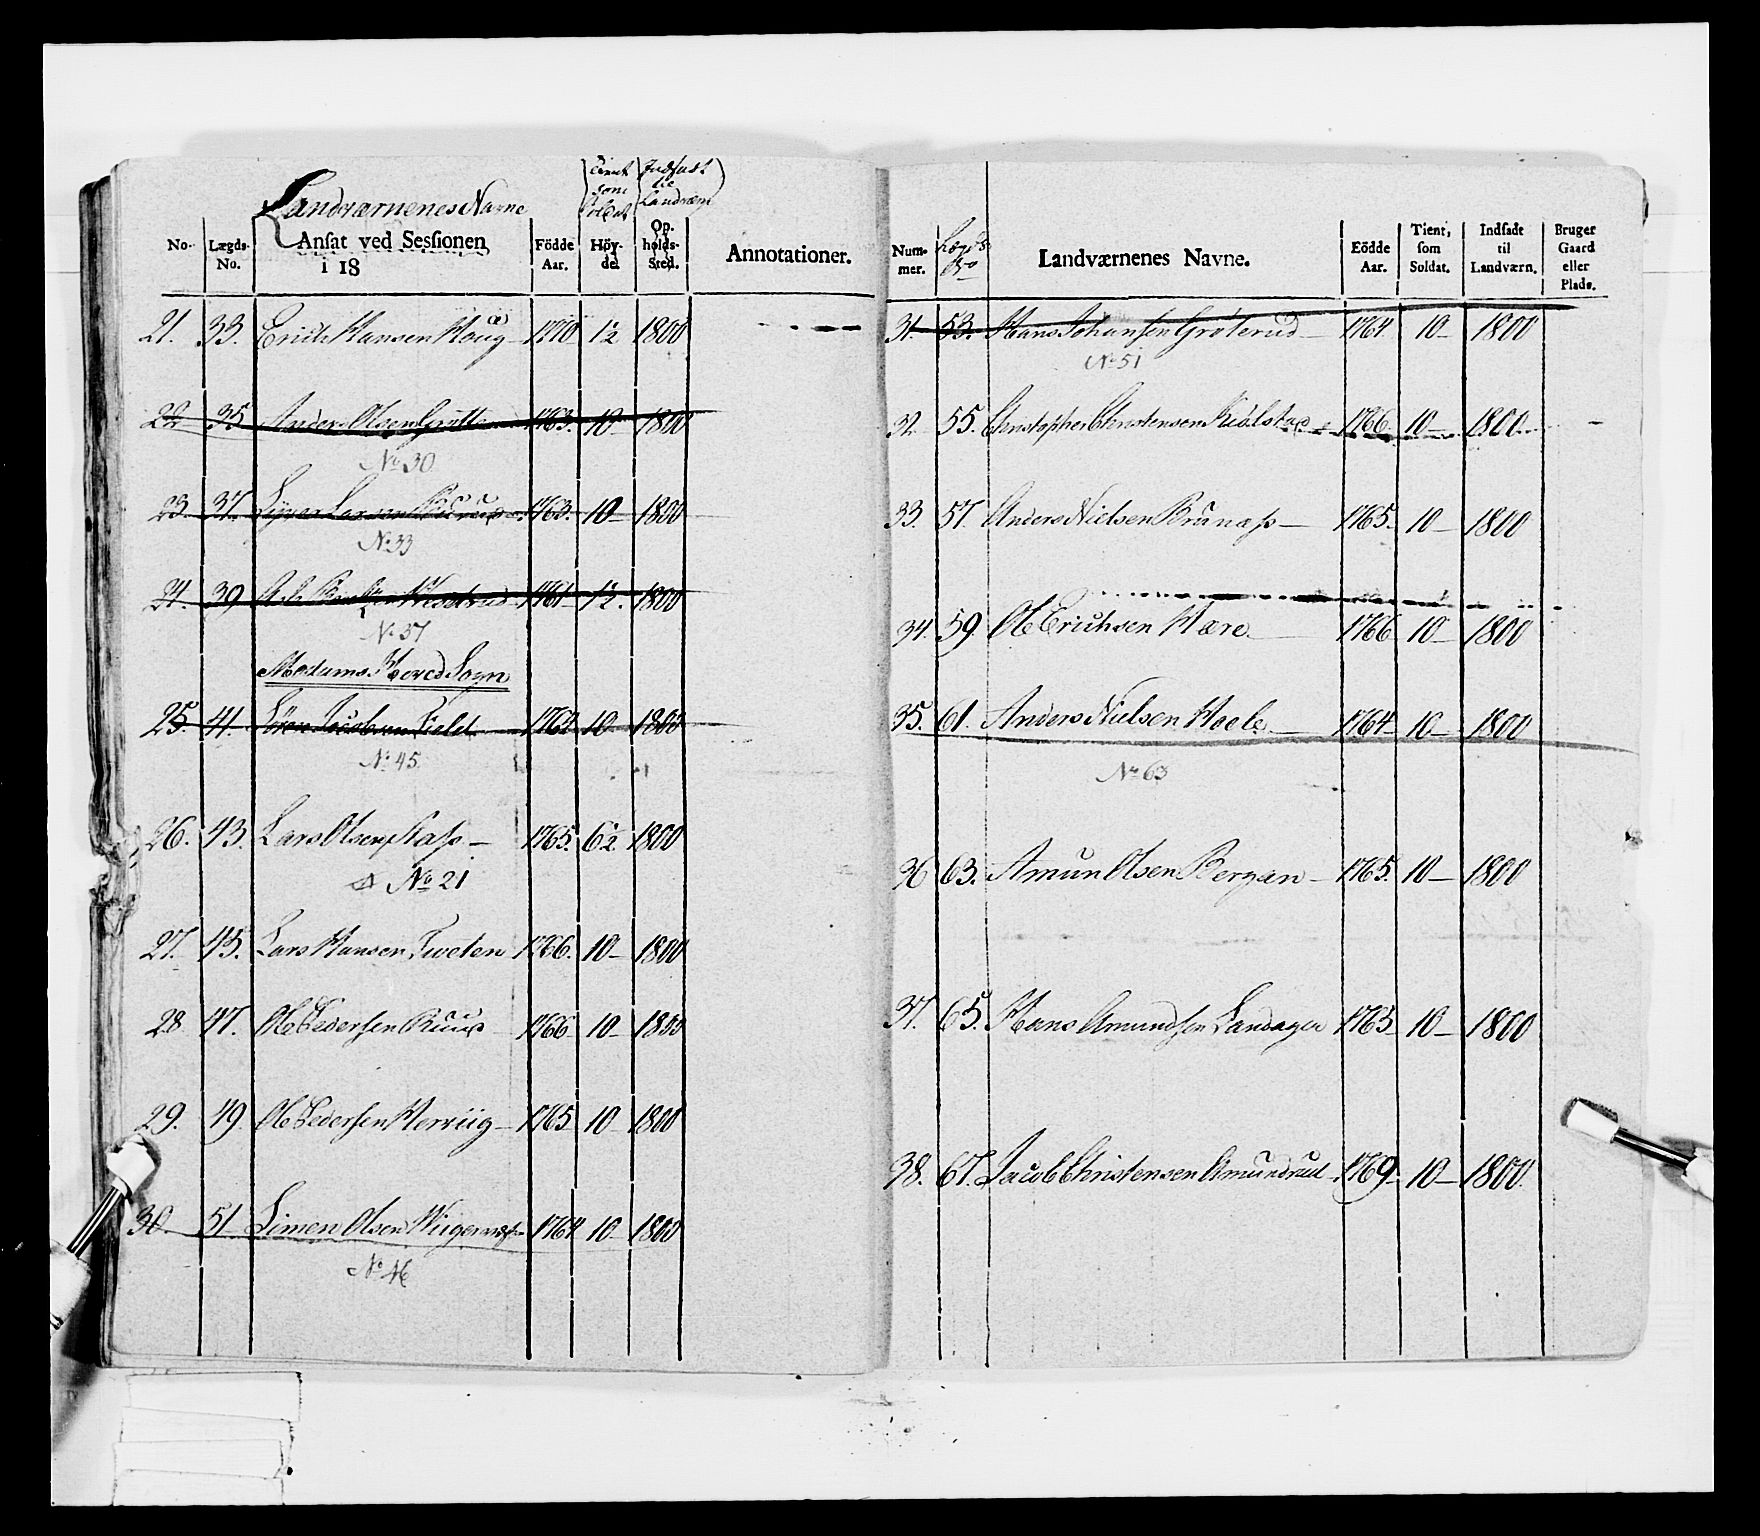 Landværnenes Navne
Tient som Soldat
Indsadt til Landværn
No. Lægds-No. Ansat ved Sessionen i 18 Födde Aar. Höy-de. Op-holds-Sted. Annotationer.
21. 33. Erich Hansen Houg 1770 1½ 1800
22 35 Anders Olsen 1763. 10 1800
No 30
23. 37. Larsen 1763. 10 1800
No 33
24. 39 1761 1½. 1800
No 37
Modums Hoved Sogn
25. 41. Sören Jacobsen Field 1764 10 1800
No 45
26. 43. Lars Olsen 1765. 6½ 1800
No 21
27. 45. Lars Hansen Tveten 1766. 10 1800
28 47. Ole Pedersen Ruud 1766 10 1800
29. 49 Ole Pedersen Hervig 1765 10 1800
30. 51 Simen Olsen 1764 10 1800
No 46
Num-mer. Lægds No Landværnenes Navne. Födde Aar. Tient, som Soldat. Indsadt til Landværn. Bruger Gaard eller Plads.
31. 53. Hans Johansen Gröterud 1764 10 1800
No 51
32. 55. Christopher Christensen Kiölstad 1766. 10 1800
33. 57. Anders Nielsen Brunaas 1765. 10 1800
34. 59. Ole Erichsen Hære 1766 10 1800
35. 61. Anders Nielsen Hoele 1764 10 1800
No 63
36 63. Amun Olsen Bergan 1765. 10 1800
37. 65. Hans Amundsen Landager 1763 10 1800
38. 67. Jacob Christensen Amundrud 1769. 10 1800